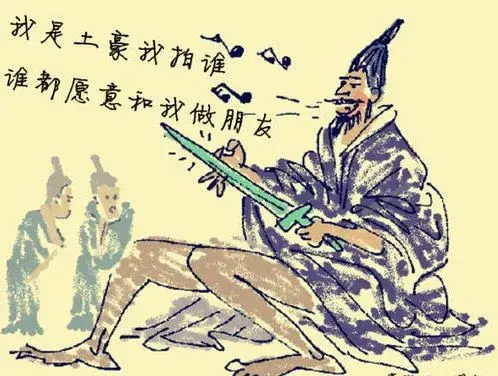 我是土豪我拍谁
谁都愿意和我做朋友